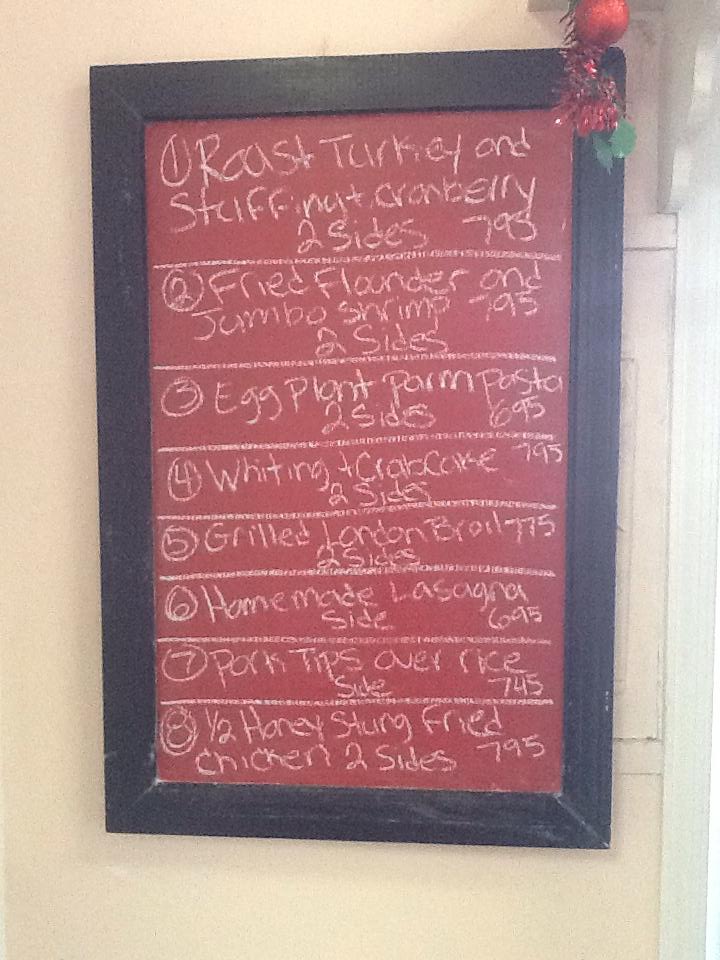 ① Roast Turkey and
Stuffing + cranberry
2 Sides 795
② Fried Flounder and
Jumbo Shrimp 795
2 Sides
③ Egg Plant parm pasta
2 Sides 695
④ Whiting + Crab Cake 795
2 Sides
⑤ Grilled London Broil 775
2 Sides
⑥ Homemade Lasagna
Side 695
⑦ Pork Tips over rice
Side 745
⑧ 1/2 Honey Stung Fried
chicken 2 Sides 795